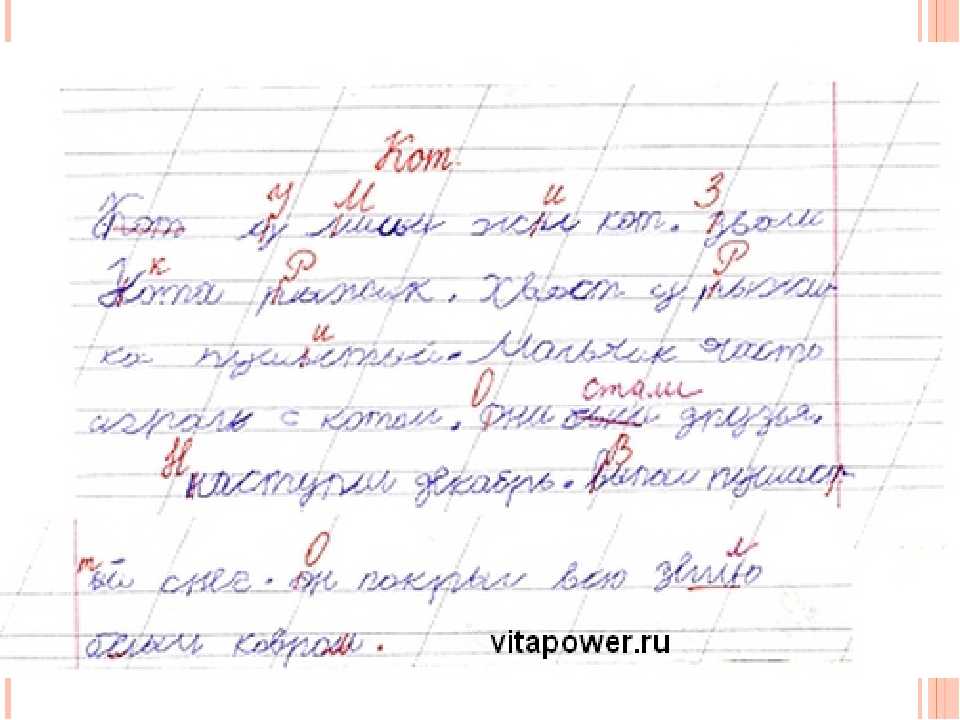 Кот.
Кот у Миши жил кот. Звали
кота Рыжик. Хвост у Рыжи-
ка пушистый. Мальчик часто
играл с котом. Они стали друзья.
Наступил декабрь. Выпал пушист-
тый снег. Он покрыл всю землю
белым ковром.
vitapower.ru